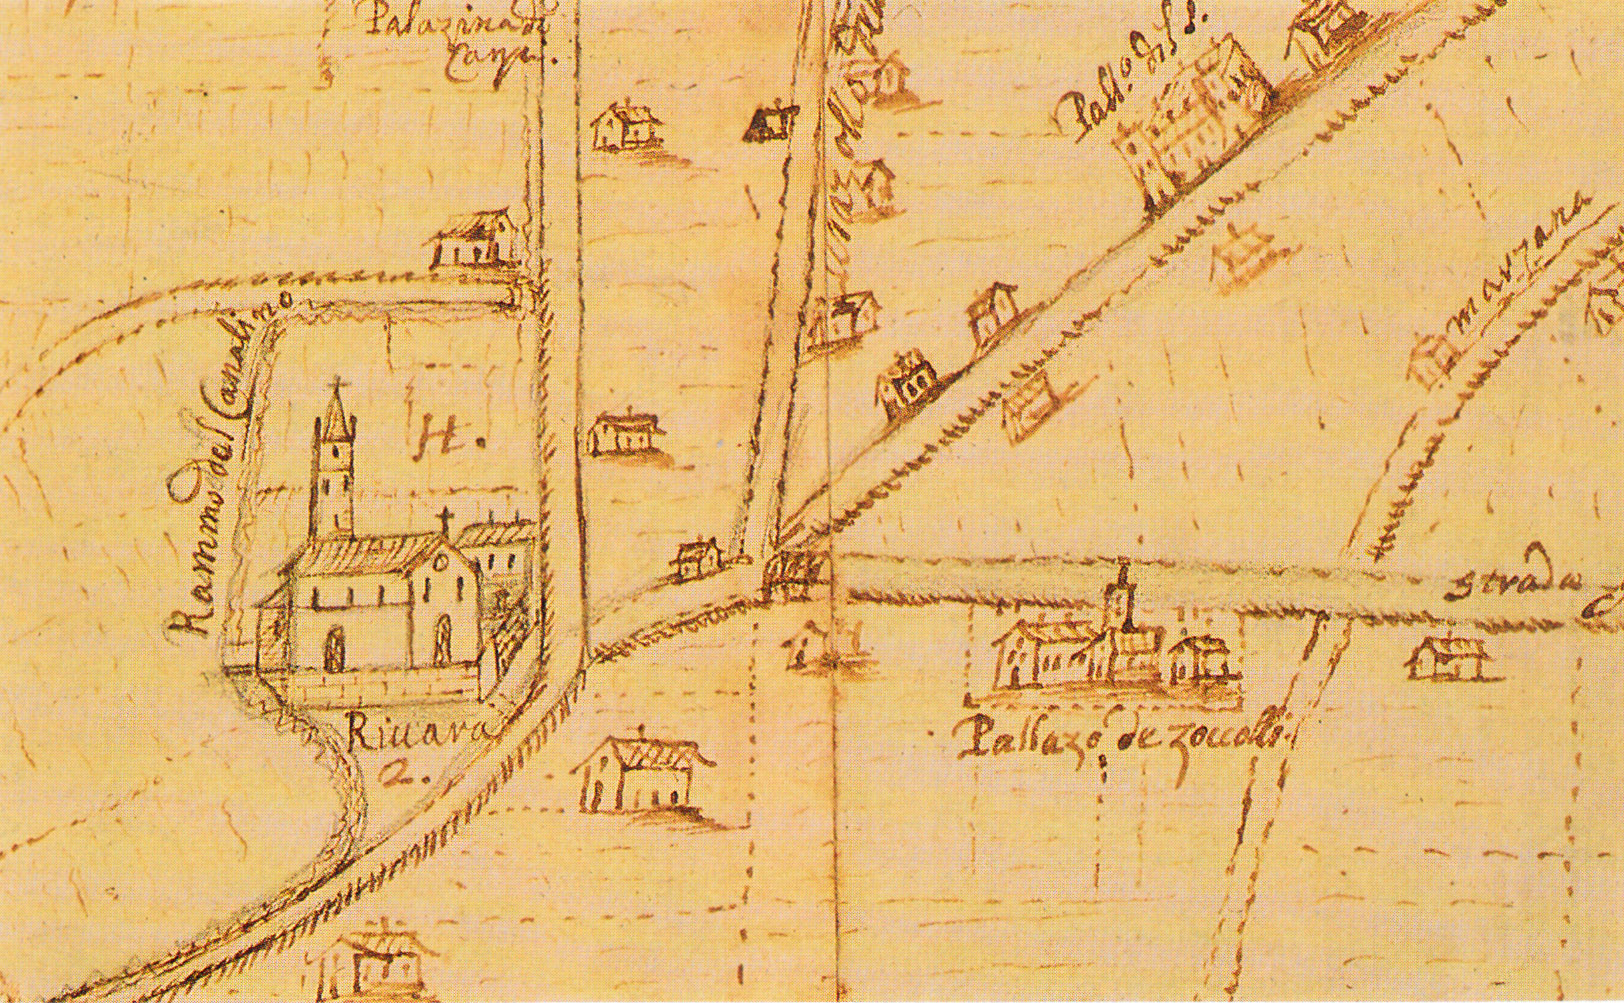 Palazina di
Carpi.
Pall.º di S S.
manzana
Rammo del Canalino
H.
strada
Riuara
2.
Pallazo de zoccoli.